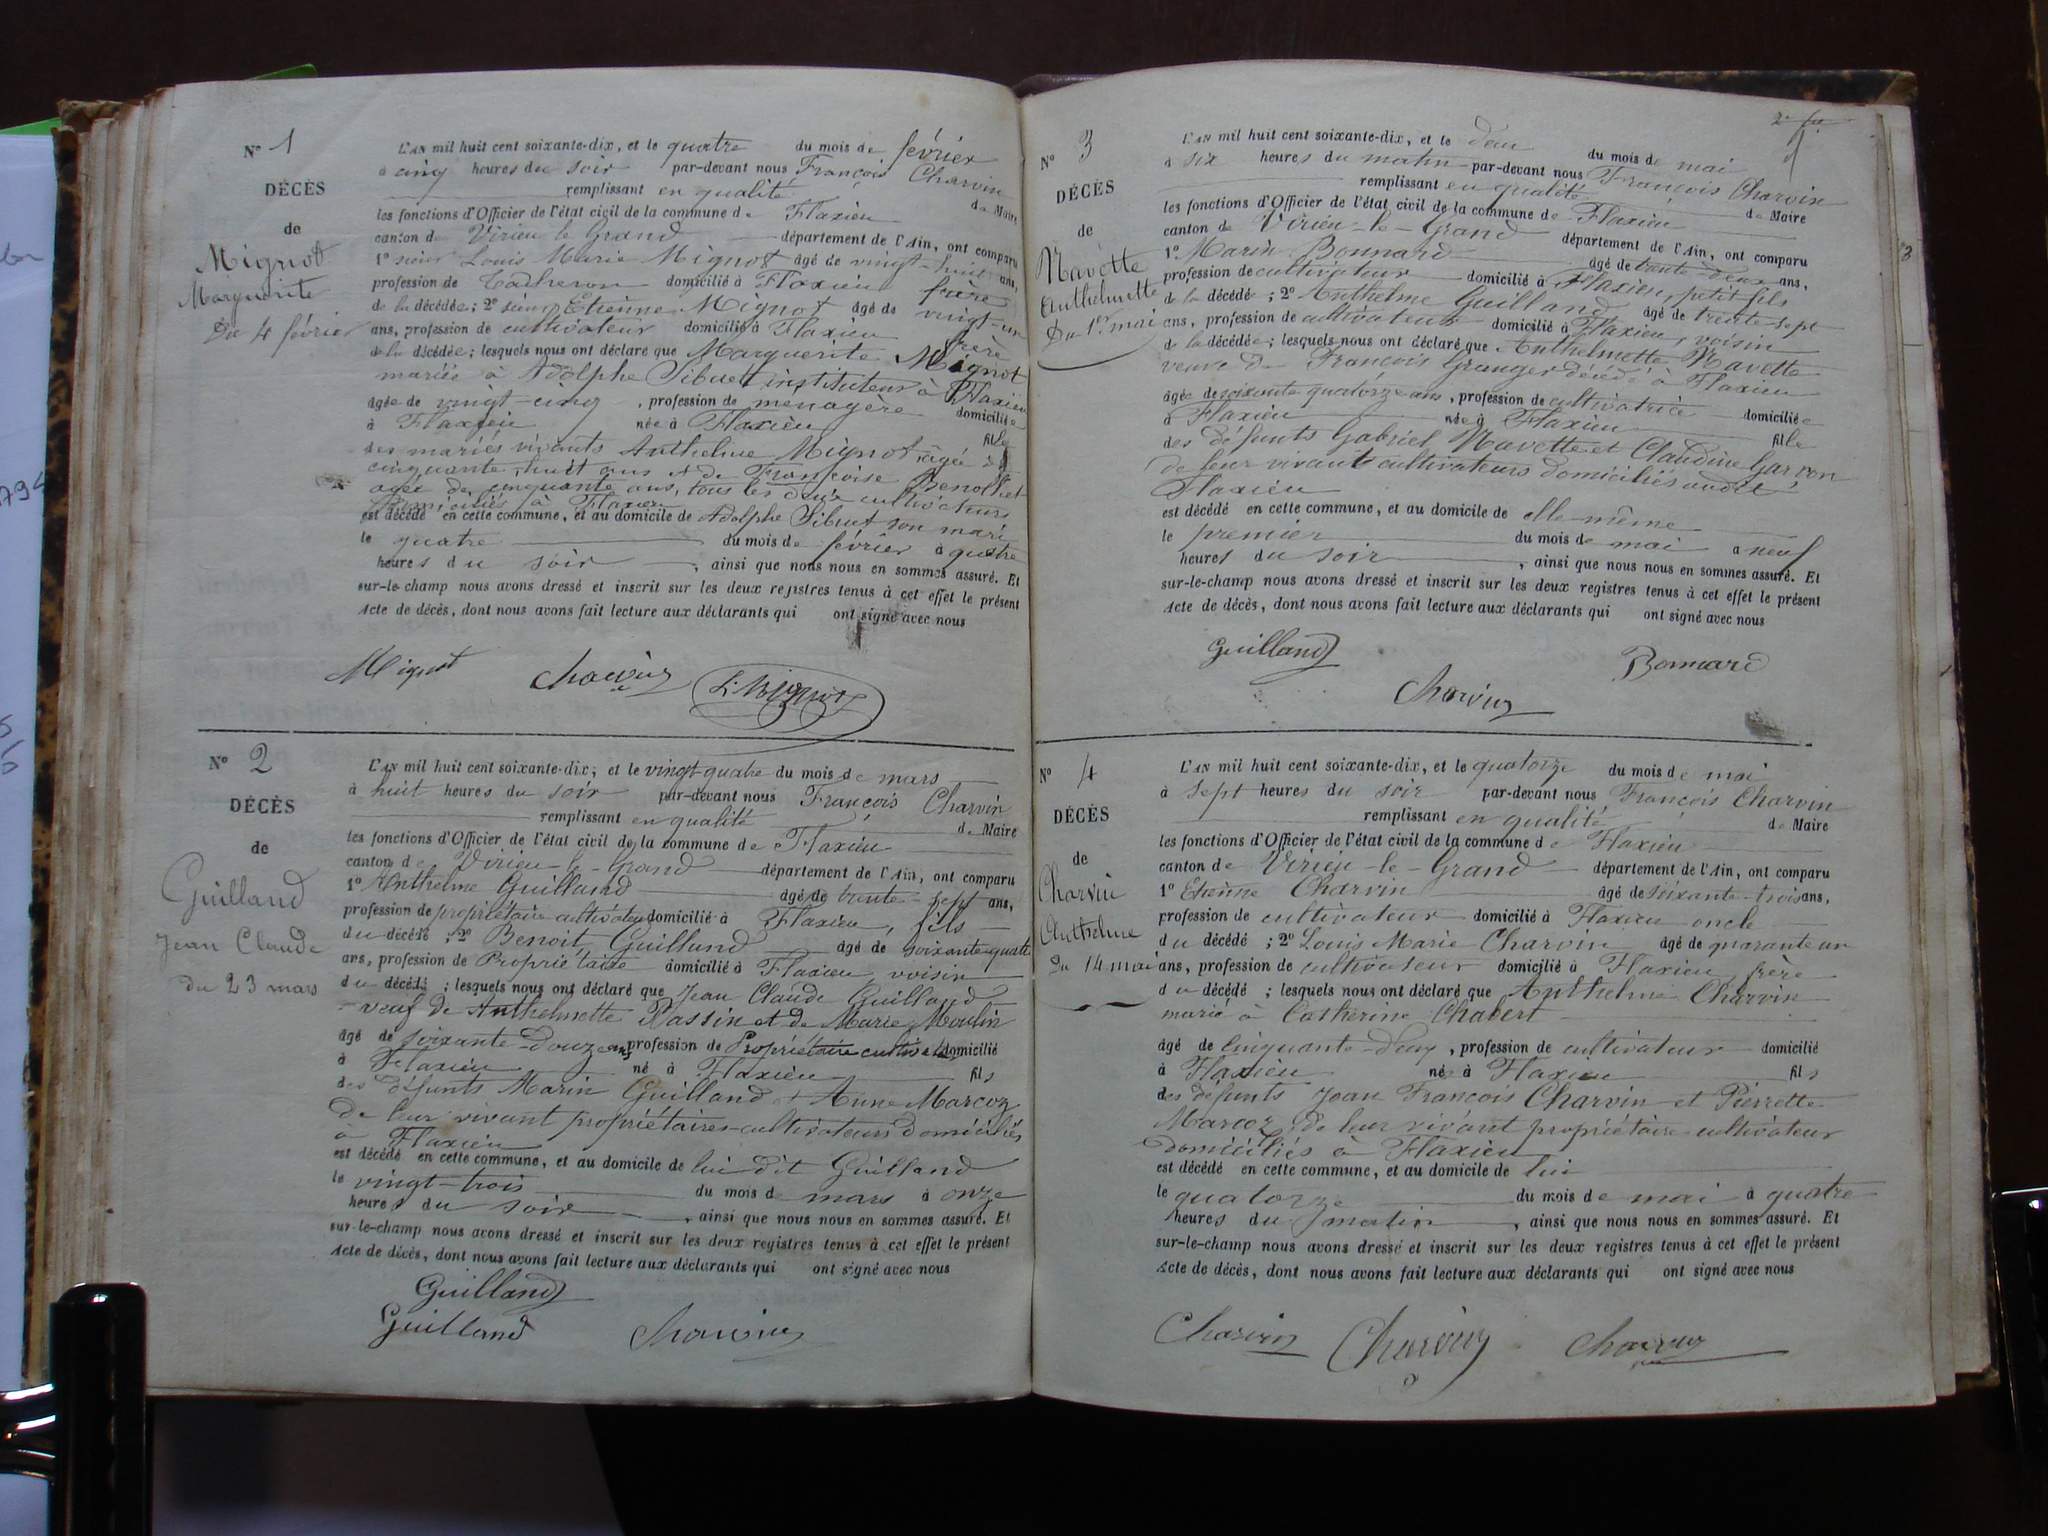 N° 1
DÉCÈS
de
Mignot
Marguerite
Du 4 février
L'AN mil huit cent soixante-dix, et le quatre du mois de février
à cinq heures du soir par-devant nous François Charvin
remplissant en qualité de Maire
les fonctions d'Officier de l'état civil de la commune de Flaxieu
canton de Virieu le Grand département de l'Ain, ont comparu
1° sieur Louis Marie Mignot âgé de vingt-huit ans,
profession de domicilié à Flaxieu frère
de la décédée; 2° sieur Etienne Mignot âgé de vingt-un
ans, profession de cultivateur domicilié à Flaxieu frère
de la décédée; lesquels nous ont déclaré que Marguerite Mignot
mariée à Adolphe Sibuet instituteur à Flaxieu
âgée de vingt-cinq, profession de ménagère domiciliée
à Flaxieu née à Flaxieu fille
des mariés vivants Anthelme Mignot âgé de
cinquante huit ans et de Françoise Benothet
agée de cinquante ans, tous les deux cultivateurs
domiciliés à Flaxieu
est décédé en cette commune, et au domicile de Adolphe Sibuet son mari
le quatre du mois de février à quatre
heures du soir, ainsi que nous nous en sommes assuré. Et
sur-le-champ nous avons dressé et inscrit sur les deux registres tenus à cet effet le présent
Acte de décès, dont nous avons fait lecture aux déclarants qui ont signé avec nous
Mignot Charvin L. Mignot
N° 2
DÉCÈS
de
Guilland
Jean Claude
du 23 mars
L'AN mil huit cent soixante-dix, et le vingt-quatre du mois de mars
à huit heures du soir par-devant nous François Charvin
remplissant en qualité de Maire
les fonctions d'Officier de l'état civil de la commune de Flaxieu
canton de Virieu-le-Grand département de l'Ain, ont comparu
1° Anthelme Guilland âgé de trente-sept ans,
profession de propriétaire cultivateur domicilié à Flaxieu, fils
du décédé; 2° Benoit Guilland âgé de soixante-quatre
ans, profession de Propriétaire domicilié à Flaxieu voisin
du décédé; lesquels nous ont déclaré que Jean Claude Guilland
veuf de Anthelmette Passin et de Marie Moulin
âgé de soixante-douze ans profession de Propriétaire cultivateur domicilié
à Flaxieu né à Flaxieu fils
des défunts Marin Guilland et Anne Marcoz
de leur vivant propriétaires-cultivateurs domiciliés
à Flaxieu
est décédé en cette commune, et au domicile de lui dit Guilland
le vingt-trois du mois de mars à onze
heures du soir, ainsi que nous nous en sommes assuré. Et
sur-le-champ nous avons dressé et inscrit sur les deux registres tenus à cet effet le présent
Acte de décès, dont nous avons fait lecture aux déclarants qui ont signé avec nous
Guilland
Guilland Charvin
N° 3
DÉCÈS
de
Navette
Anthelmette
Du 1er mai
L'AN mil huit cent soixante-dix, et le deux du mois de mai
à six heures du matin par-devant nous François Charvin
remplissant en qualité de Maire
les fonctions d'Officier de l'état civil de la commune de Flaxieu
canton de Virieu-le-Grand département de l'Ain, ont comparu
1° Marin Bonnard âgé de trente-deux ans,
profession de cultivateur domicilié à Flaxieu, petit fils
de la décédé; 2° Anthelme Guilland âgé de trente sept
ans, profession de cultivateur domicilié à Flaxieu, voisin
de la décédée; lesquels nous ont déclaré que Anthelmette Navette
veuve de François Granger décédé à Flaxieu
âgée de soixante quatorze ans, profession de cultivatrice domiciliée
à Flaxieu née à Flaxieu fille
des défunts Gabriel Navette et Claudine Garron
de leur vivant cultivateurs domiciliés audit
Flaxieu
est décédé en cette commune, et au domicile de elle-même
le premier du mois de mai à neuf
heures du soir, ainsi que nous nous en sommes assuré. Et
sur-le-champ nous avons dressé et inscrit sur les deux registres tenus à cet effet le présent
Acte de décès, dont nous avons fait lecture aux déclarants qui ont signé avec nous
Guilland Bonnard
Charvin
N° 4
DÉCÈS
de
Charvin
Anthelme
Du 14 mai
L'AN mil huit cent soixante-dix, et le quatorze du mois de mai
à sept heures du soir par-devant nous François Charvin
remplissant en qualité de Maire
les fonctions d'Officier de l'état civil de la commune de Flaxieu
canton de Virieu-le-Grand département de l'Ain, ont comparu
1° Etienne Charvin âgé de soixante-trois ans,
profession de cultivateur domicilié à Flaxieu oncle
du décédé; 2° Louis Marie Charvin âgé de quarante un
ans, profession de cultivateur domicilié à Flaxieu, frère
du décédé; lesquels nous ont déclaré que Anthelme Charvin
marié à Catherine Chabert
âgé de cinquante-deux, profession de cultivateur domicilié
à Flaxieu né à Flaxieu fils
des défunts Jean François Charvin et Pierrette
Marcoz, de leur vivant propriétaire cultivateur
domiciliés à Flaxieu
est décédé en cette commune, et au domicile de lui
le quatorze du mois de mai à quatre
heures du matin, ainsi que nous nous en sommes assuré. Et
sur-le-champ nous avons dressé et inscrit sur les deux registres tenus à cet effet le présent
Acte de décès, dont nous avons fait lecture aux déclarants qui ont signé avec nous
Charvin Charvin Charvin